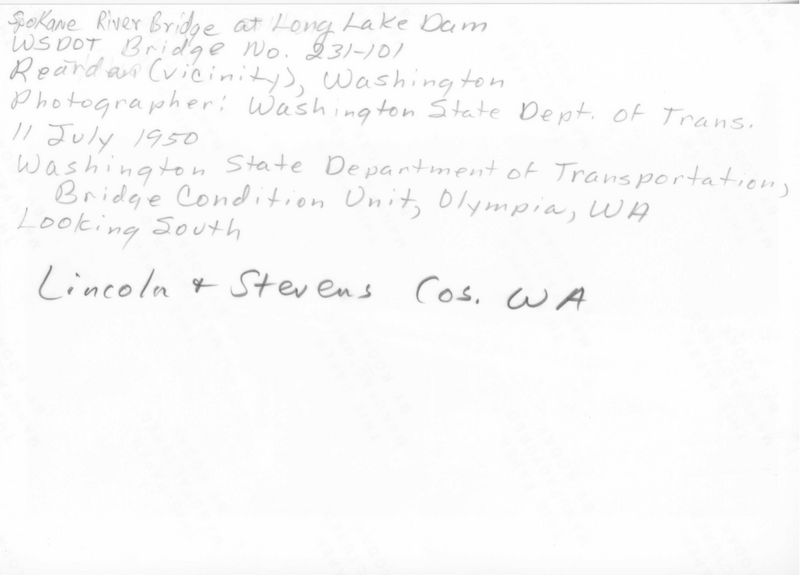 Spokane River Bridge at Long Lake Dam
WSDOT Bridge No. 231-101
Reardan (vicinity), Washington
Photographer: Washington State Dept. of Trans.
11 July 1950
Washington State Department of Transportation,
Bridge Condition Unit, Olympia, WA
Looking South
Lincoln + Stevens Cos. WA